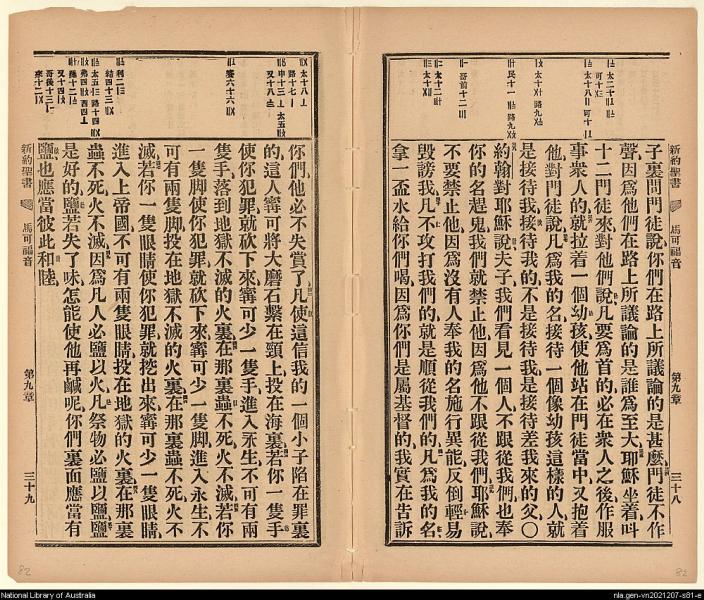 新約聖書
馬可福音
第九章
三十八
子裏問門徒說你們在路上所議論的是甚麼門徒不作
聲因爲他們在路上所議論的是誰爲至大耶穌坐着呌
十二門徒來對他們說凡要爲首的必在衆人之後作服
事衆人的就拉着一個幼孩使他站在門徒當中又抱着
他對門徒說凡爲我的名接待一個像幼孩這樣的人就
是接待我接待我的不是接待我是接待差我來的父〇
約翰對耶穌說夫子我們看見一個人不跟從我們也奉
你的名趕鬼我們就禁止他因爲他不跟從我們耶穌說
不要禁止他因爲沒有人奉我的名施行異能反倒輕易
毀謗我凡不攻打我們的就是順從我們的凡爲我的名
拿一盃水給你們喝因爲你們是屬基督的我實在告訴
你們他必不失賞了凡使這信我的一個小子陷在罪裏
的這人寧可將大磨石繫在頸上投在海裏若你一隻手
使你犯罪就砍下來寧可少一隻手進入永生不可有兩
隻手落到地獄不滅的火裏在那裏蟲不死火不滅若你
一隻脚使你犯罪就砍下來寧可少一隻脚進入永生不
可有兩隻脚投在地獄不滅的火裏在那裏蟲不死火不
滅若你一隻眼睛使你犯罪就挖出來寧可少一隻眼睛
進入上帝國不可有兩隻眼睛投在地獄的火裏在那裏
蟲不死火不滅因爲凡人必鹽以火凡祭物必鹽以鹽鹽
是好的鹽若失了味怎能使他再鹹呢你們裏面應當有
鹽也應當彼此和睦
新約聖書
馬可福音
第九章
三十九
82
82
National Library of Australia
nla.gen-vn2021207-s81-e